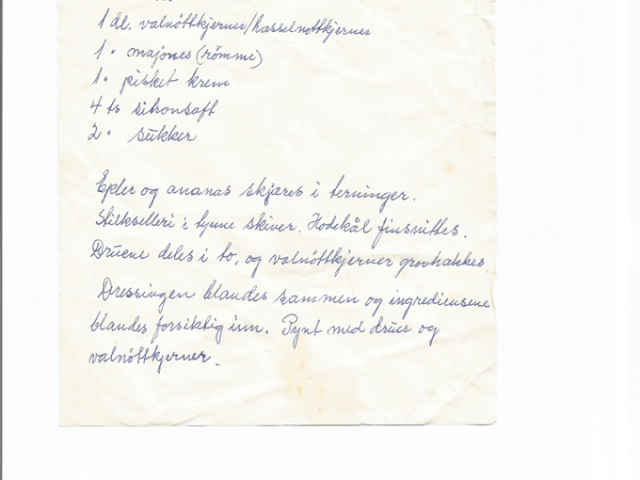 1 dl. valnöttkjerner/hasselnöttkjerner
1 " majones (römme)
1 " pisket krem
4 ts sitronsaft
2 " sukker
Epler og ananas skjæres i terninger.
Stilkselleri i tynne skiver. Hodekål finsnittes.
Druene deles i to, og valnöttkjerner grovhakkes.
Dressingen blandes sammen og ingrediensene
blandes forsiktig inn. Pynt med druer og
valnöttkjerner.